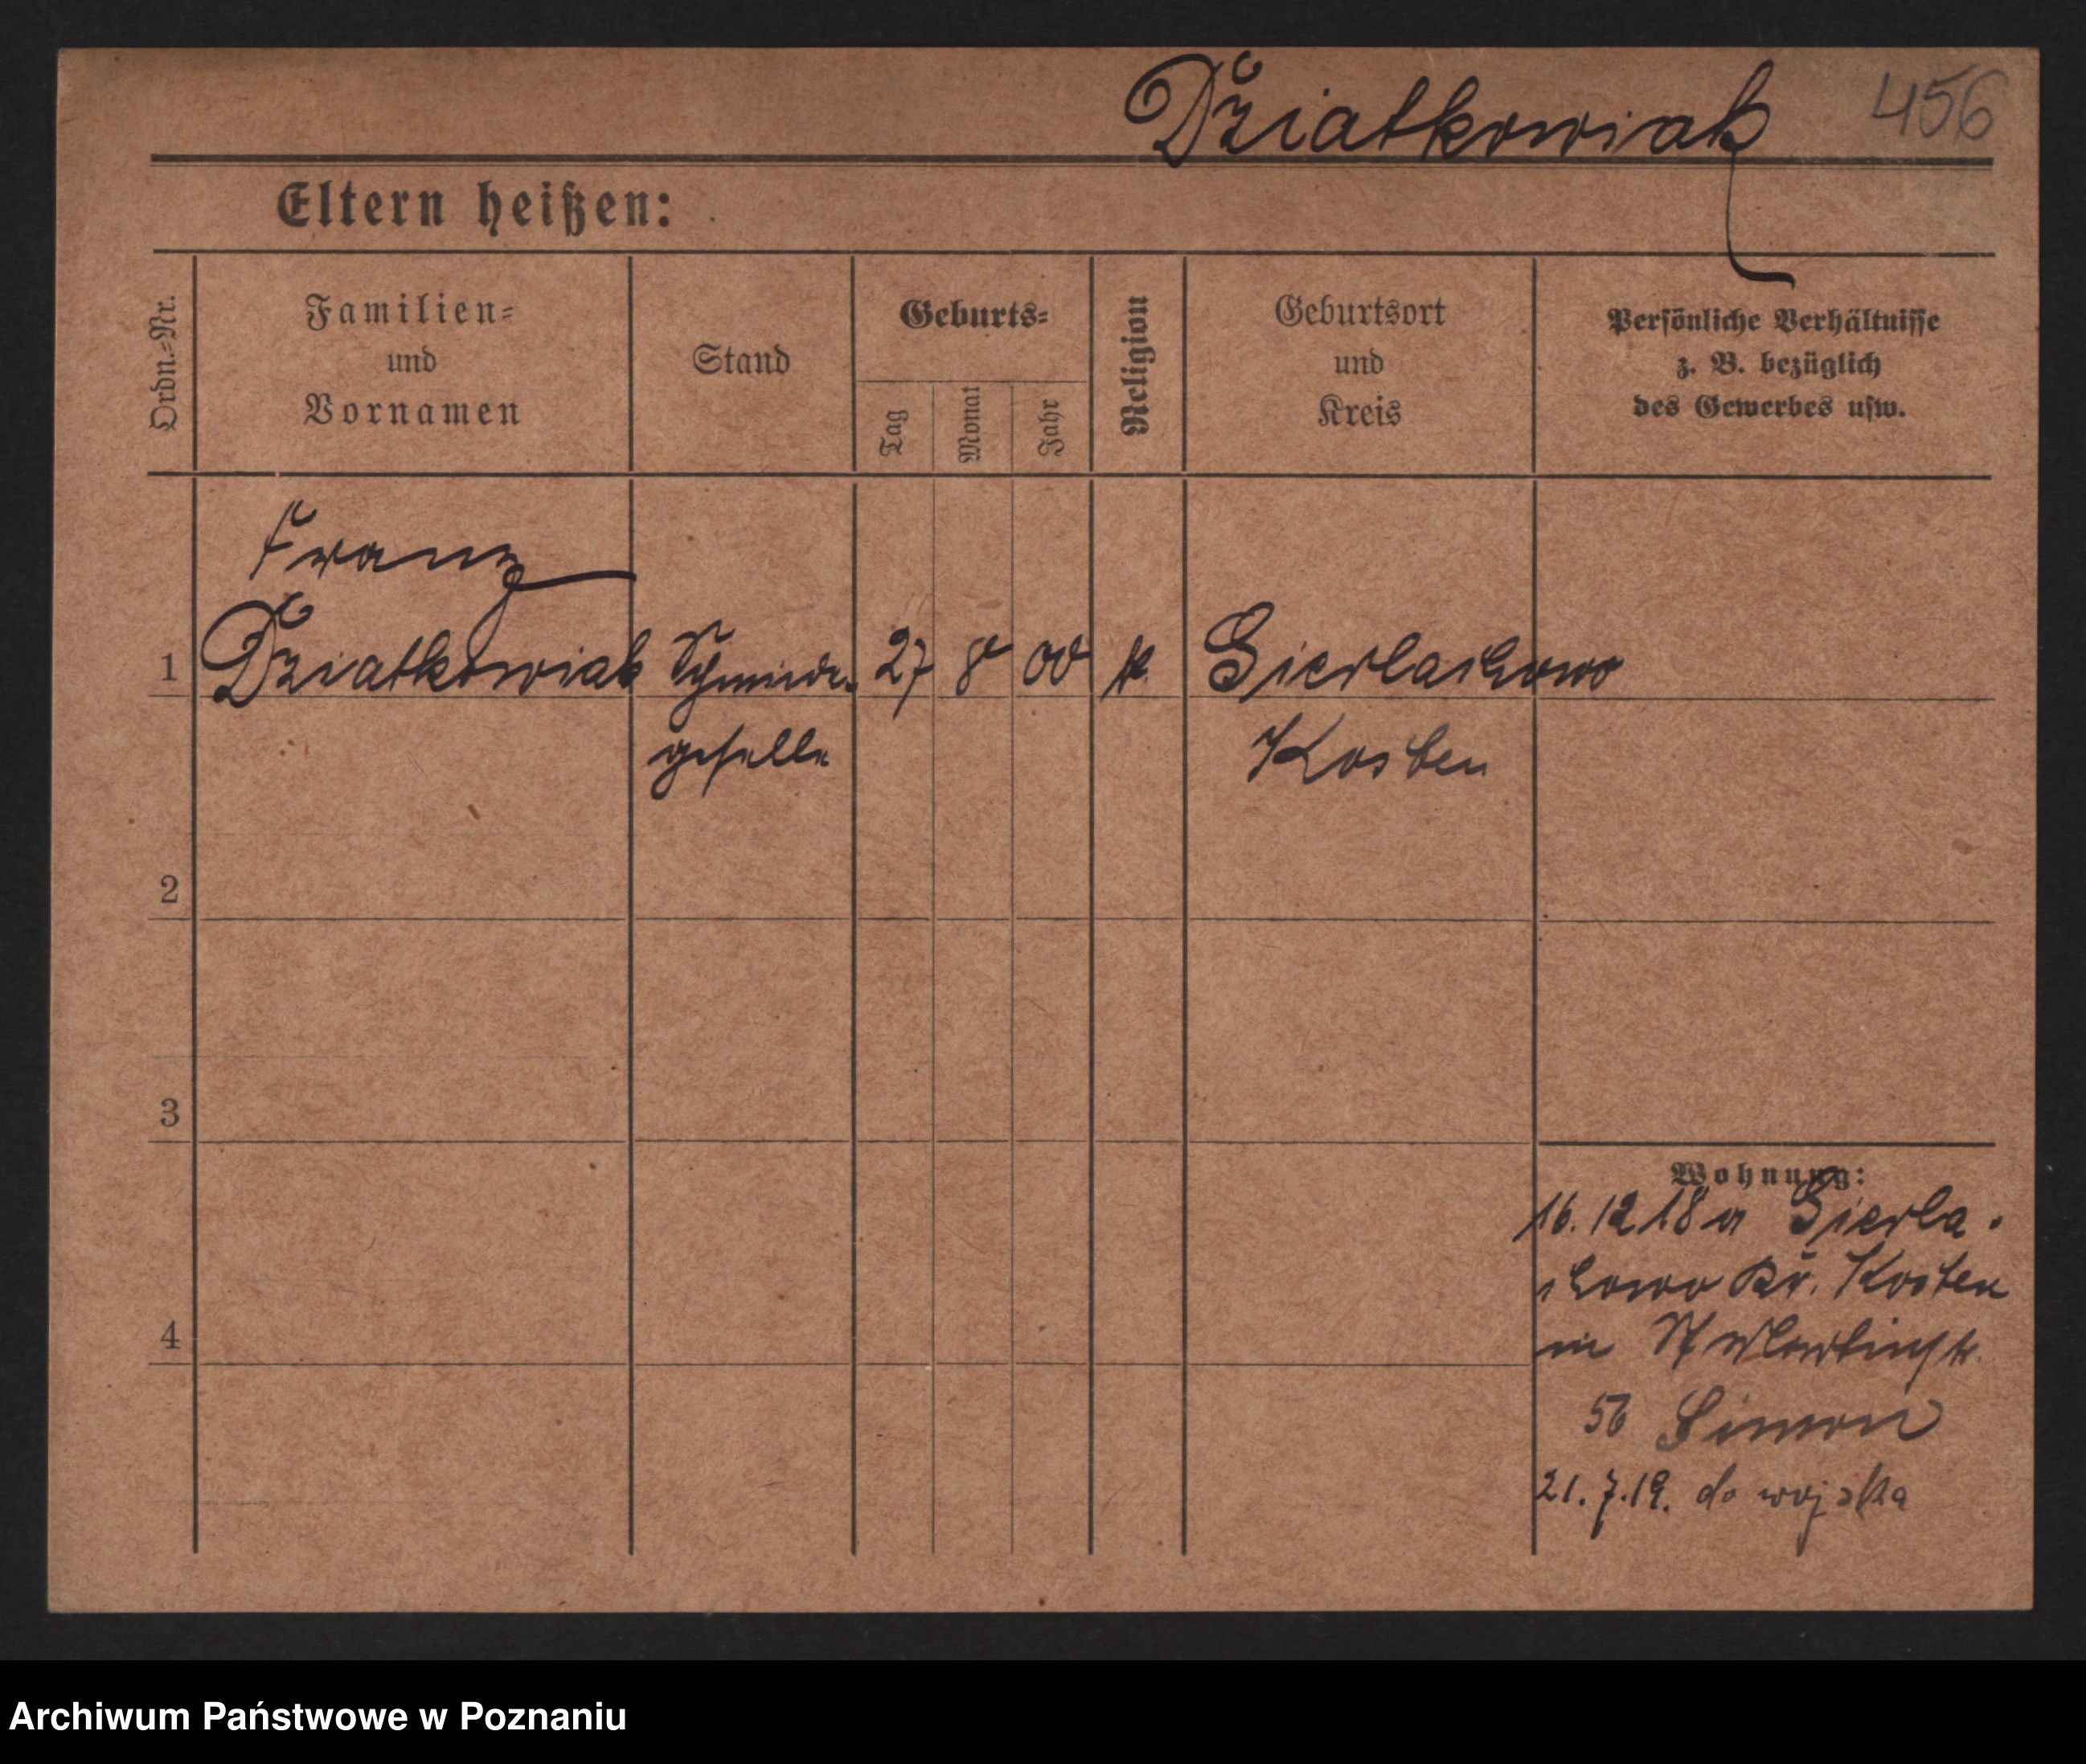 Dziatkowiak 456
Eltern heißen:
Ordn.=Nr.
Familien=
und
Vornamen
Stand
Geburts=
Tag
Monat
Jahr
Religion
Geburtsort
und
Kreis
Persönliche Verhältnisse
z. B. bezüglich
des Gewerbes usw.
Franz
1 Dziatkowiak Schmiede- 27 8 00 k. Sierlachowo
geselle Kosten
2
3
4
Wohnung:
16. 12 18 a Sierla-
chowo Kr. Kosten
in St
56 Simon
21. 7. 19. do wojska
Archiwum Państwowe w Poznaniu